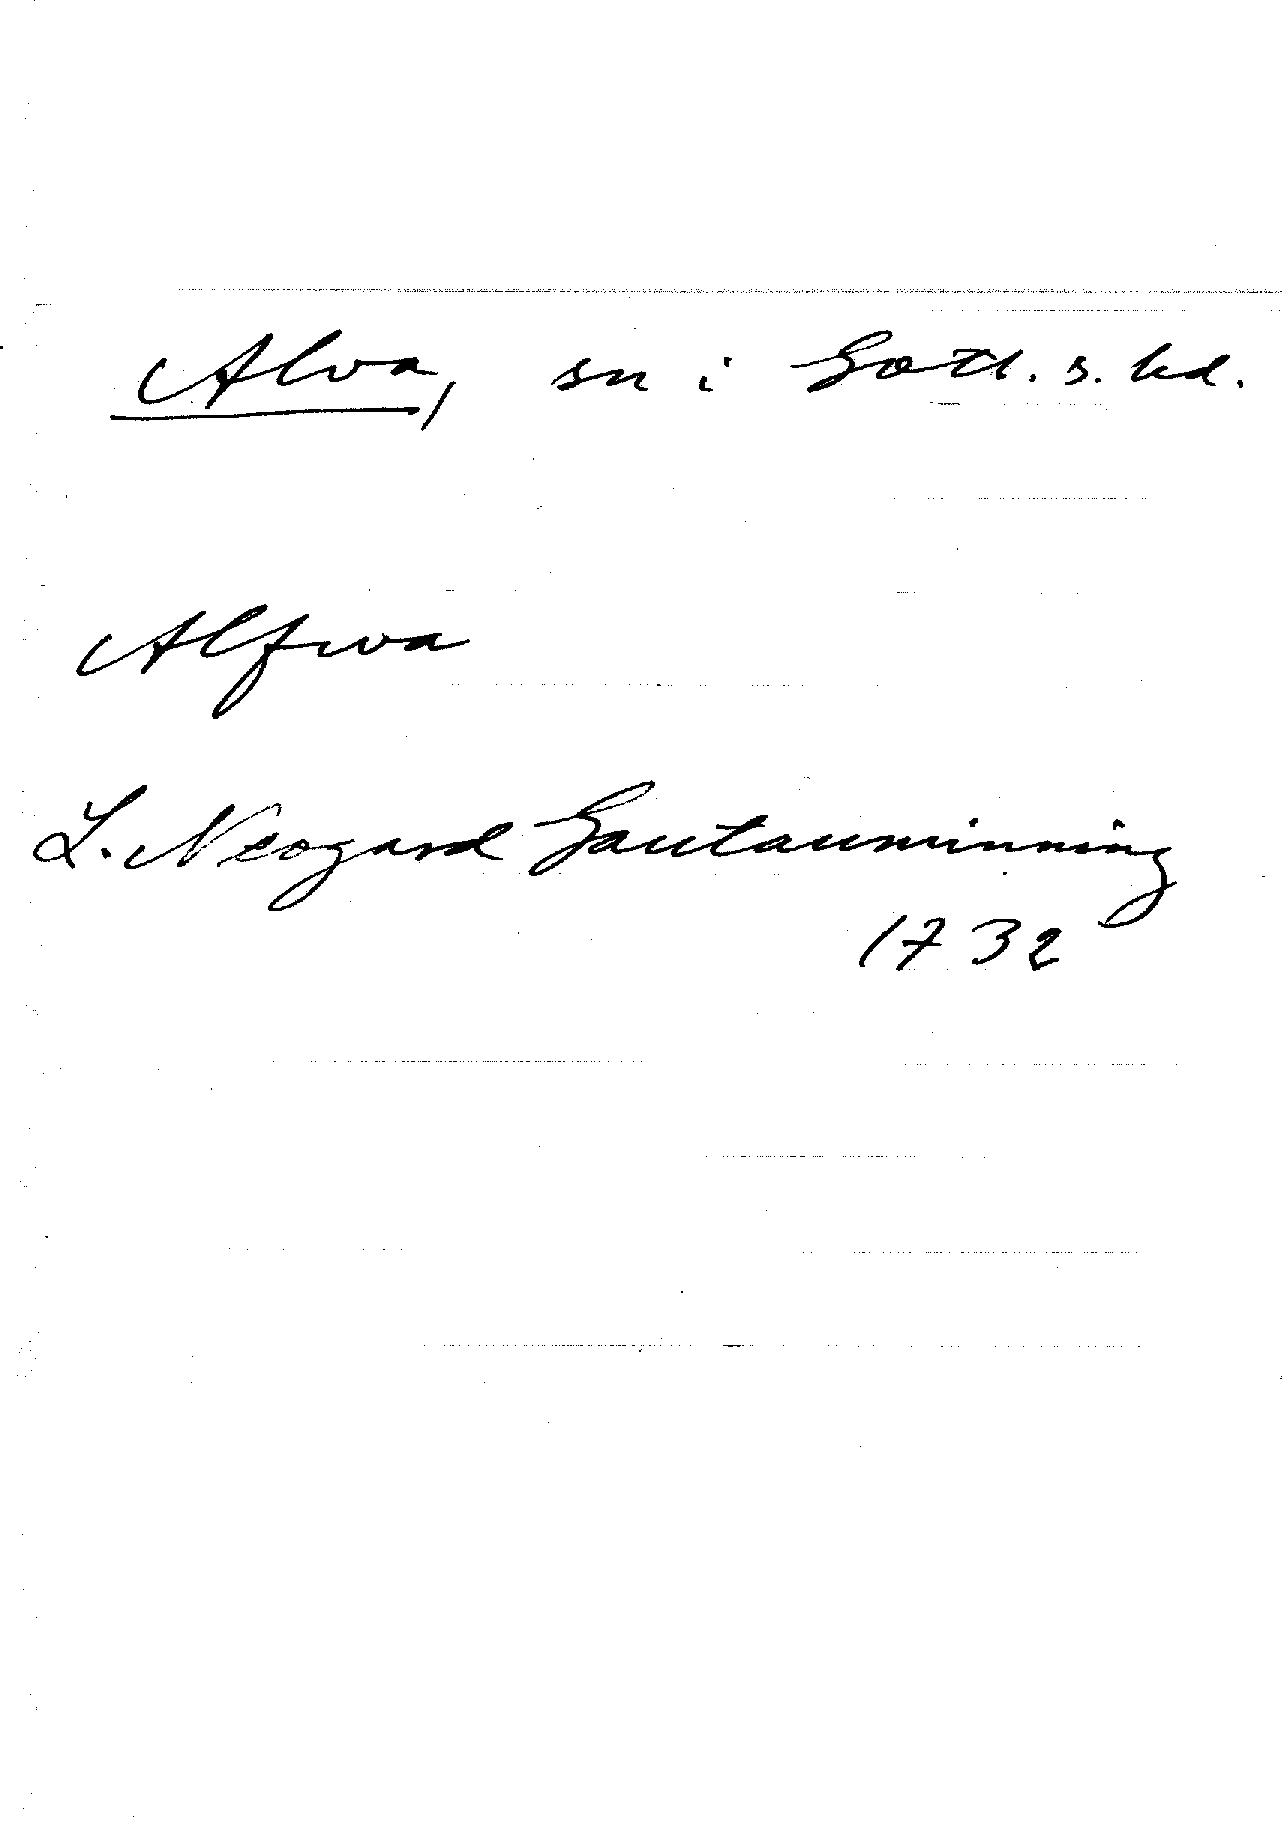 Alva, sn i Gotl. s. hd.
Alfwa
L. Neogard Gautauminning
1732